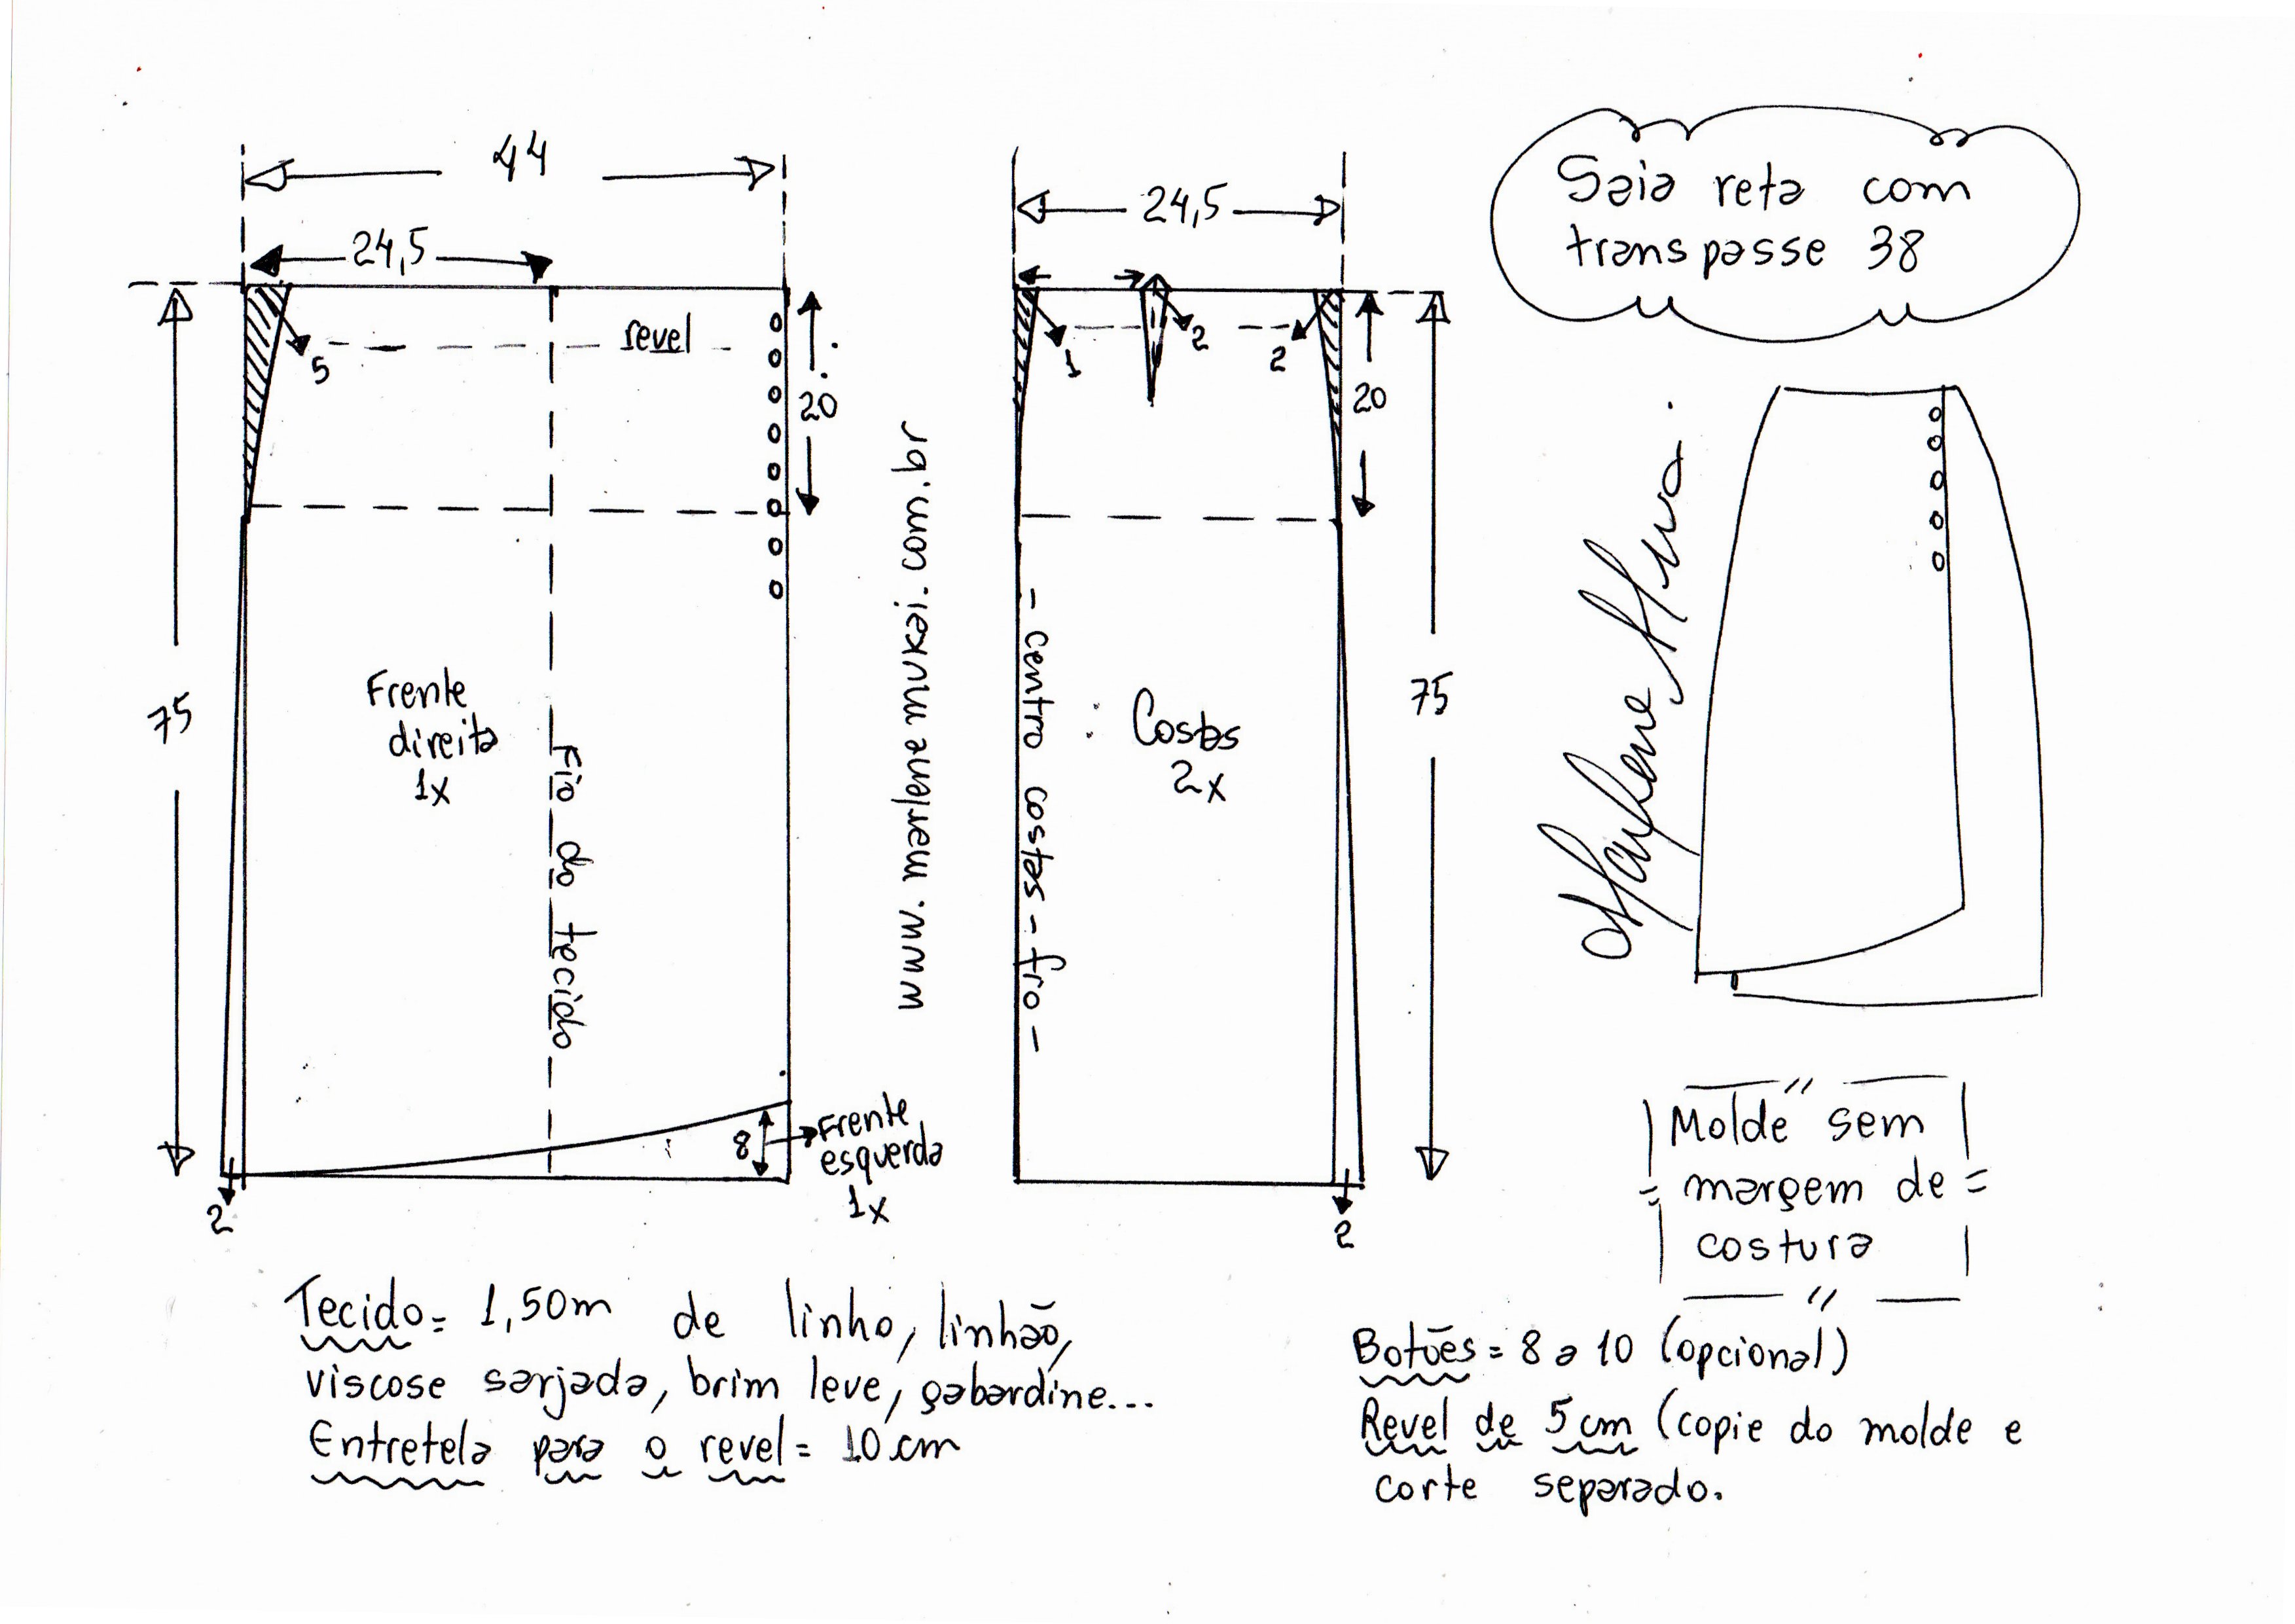 44
24,5
revel
5
20
75
Frente
direita
1x
Fio do tecido
8
Frente
esquerda
1x
2
www.marlenemukai.com.br
24,5
1
2
2
20
75
- centro costas - fio -
Costas
2x
2
Saia reta com
transpasse 38
Molde sem
margem de
costura
Tecido = 1,50m de linho, linhão,
viscose sarjada, brim leve, gabardine...
Entretela para o revel = 10 cm
Botões = 8 a 10 (opcional)
Revel de 5 cm (copie do molde e
corte separado.